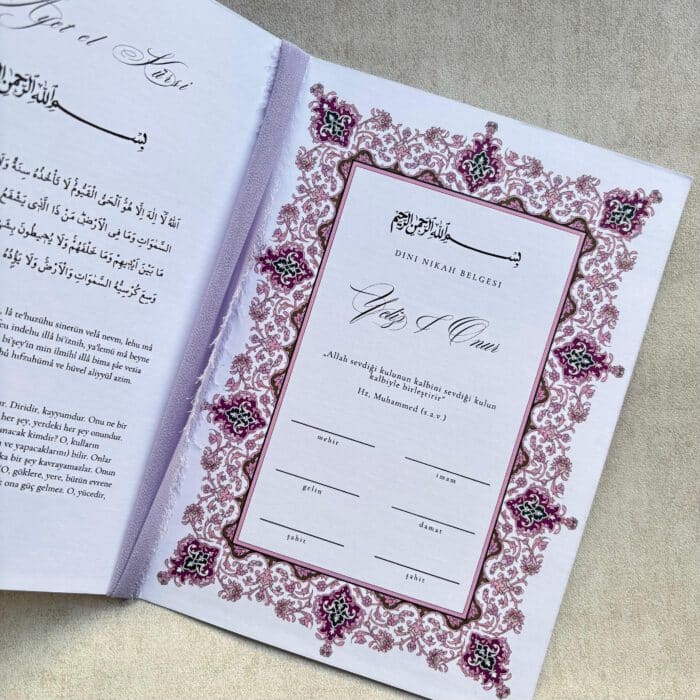 Ayet el Kürsi
بسم الله الرحمن
اَللّٰهُ لَا اِلٰهَ اِلَّا هُوَ اَلْحَيُّ الْقَيُّومُ لَا تَأْخُذُهُ سِنَةٌ
السَّمٰوَاتِ وَمَا فِى الْاَرْضِ مَنْ ذَا الَّذٖى يَشْفَعُ
مَا بَيْنَ اَيْدٖيهِمْ وَمَا خَلْفَهُمْ وَلَا يُحٖيطُونَ
وَسِعَ كُرْسِيُّهُ السَّمٰوَاتِ وَالْاَرْضَ وَلَا يَؤُدُهُ
lâ te'huzühu sinetün velâ nevm, lehu mâ
indehu illâ bi'iznih, ya'lemü mâ beyne
bi'şey'in min ilmihî illâ bima şâe vesia
hıfzuhümâ ve hüvel aliyyül azim.
Diridir, kayyumdur. Onu ne bir
her şey, yerdeki her şey onundur.
kimdir? O, kulların
ve yapacaklarını) bilir. Onlar
bir şey kavrayamazlar. Onun
(O, göklere, yere, bütün evrene
ona güç gelmez. O, yücedir,
بسم الله الرحمن الرحيم
DINI NIKAH BELGESI
Yeliz & Onur
„Allah sevdiği kulunun kalbini sevdiği kulun
kalbiyle birleştirir"
Hz, Muhammed (s.a.v.)
mehir
imam
gelin
damat
şahit
şahit